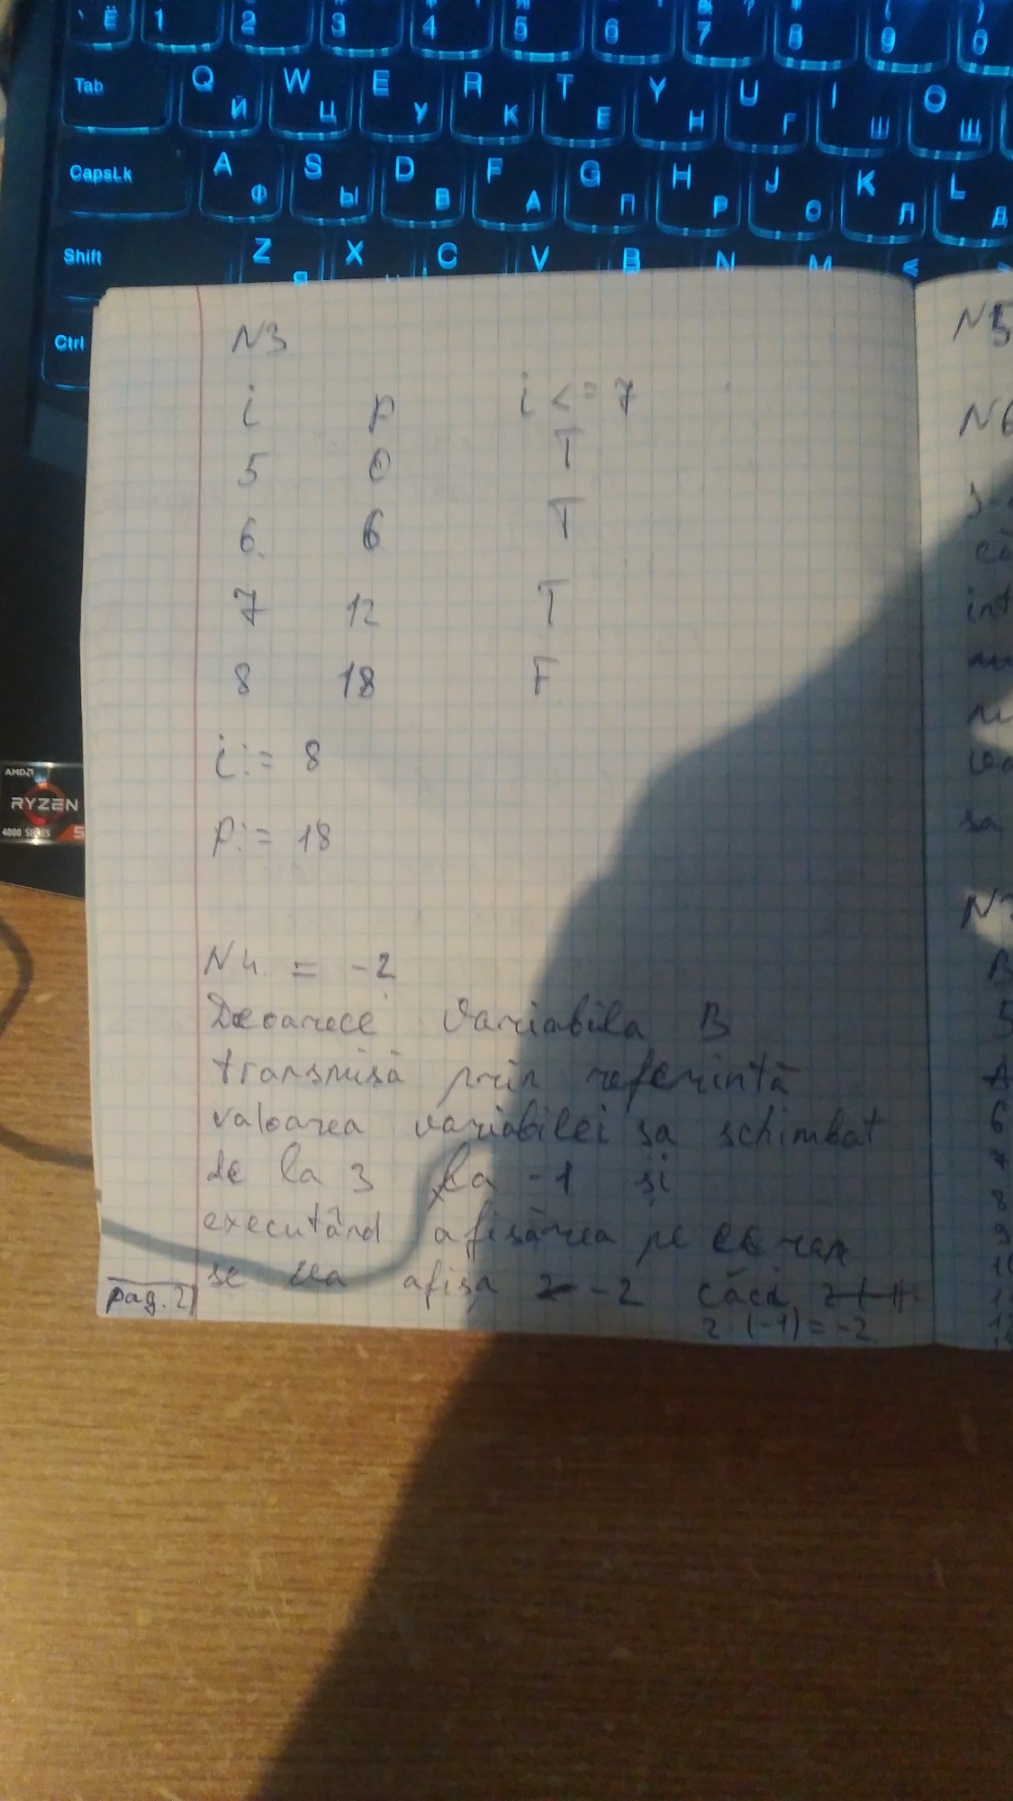 Ё 1 2 3 4 5 6 7 8 9 0
Tab Q Й W Ц E У R К T Е Y Н U Г I Ш O Щ
CapsLk A Ф S Ы D В F А G П H Р J О K Л L Д
Shift Z Я X C V B N M <
Ctrl
AMD
RYZEN
4000 SERIES 5
N3
i p i <= 7
5 0 T
6 6 T
7 12 T
8 18 F
i := 8
p := 18
N4 = -2
Deoarece variabila B
transmisă prin referintă
valoarea variabilei sa schimbat
de la 3 la -1 și
executând afișarea pe ecran
se va afișa -2 căci
2·(-1) = -2
pag. 2
N5
N6
int
sa
N7
B
5
A
6
7
8
9